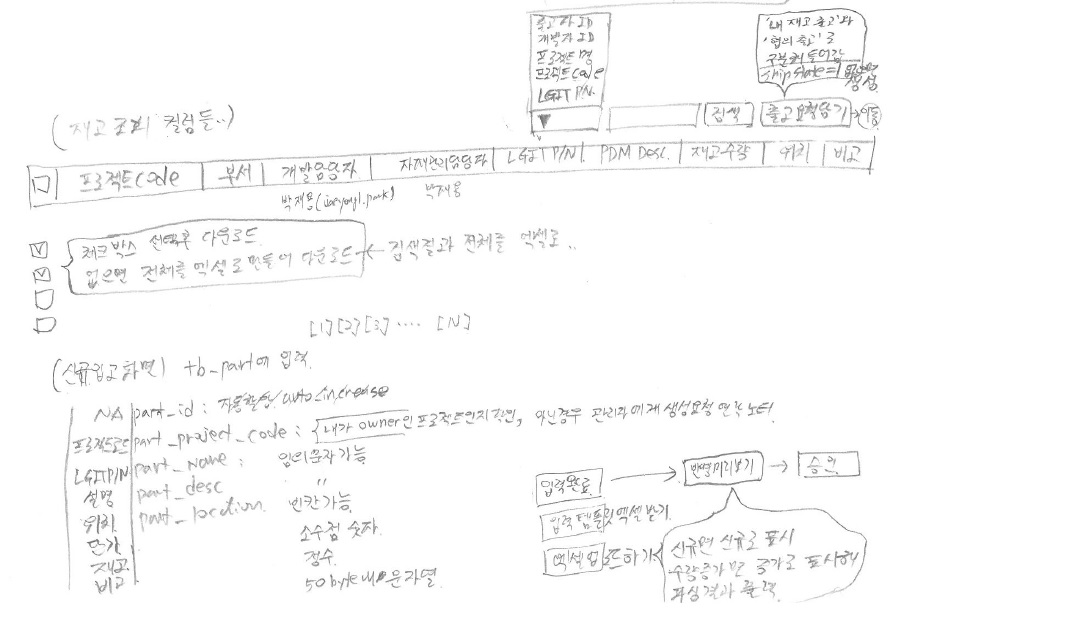 출고자ID
개발자ID
프로젝트명
프로젝트Code
LGIT P/N.
▼
'내 재고 출고'와
'협의 출고'로
구분해 들어감
ship state=1
생성
검색
출고요청담기
→ 이동
(재고 조회 컬럼들..)
프로젝트Code
부서
개발담당자
자재관리담당자
LGIT P/N.
PDM Desc.
재고수량
위치
비고
박재용
박재용
체크박스 선택후 다운로드
없으면 전체를 엑셀로 만들어 다운로드
← 검색결과 전체를 엑셀로..
[1][2][3] .... [N]
(신규입고화면) tb_part에 입력.
NA part_id : 자동할당/auto_increase
프로젝트코드 part_project_code : 내가 owner인 프로젝트인지 확인, 아닌경우 관리자에게 생성요청 연락 노티.
LGIT P/N part_name : 임의문자가능
설명 part_desc "
위치. part_location. 빈칸가능.
단가 소수점 숫자.
재고 정수.
비고 50byte 문자열.
입력완료 → 반영미리보기 → 승인
입력템플릿엑셀받기.
엑셀업로드하기
신규면 신규로 표시
수량증가면 증가로 표시해
파싱결과 출력